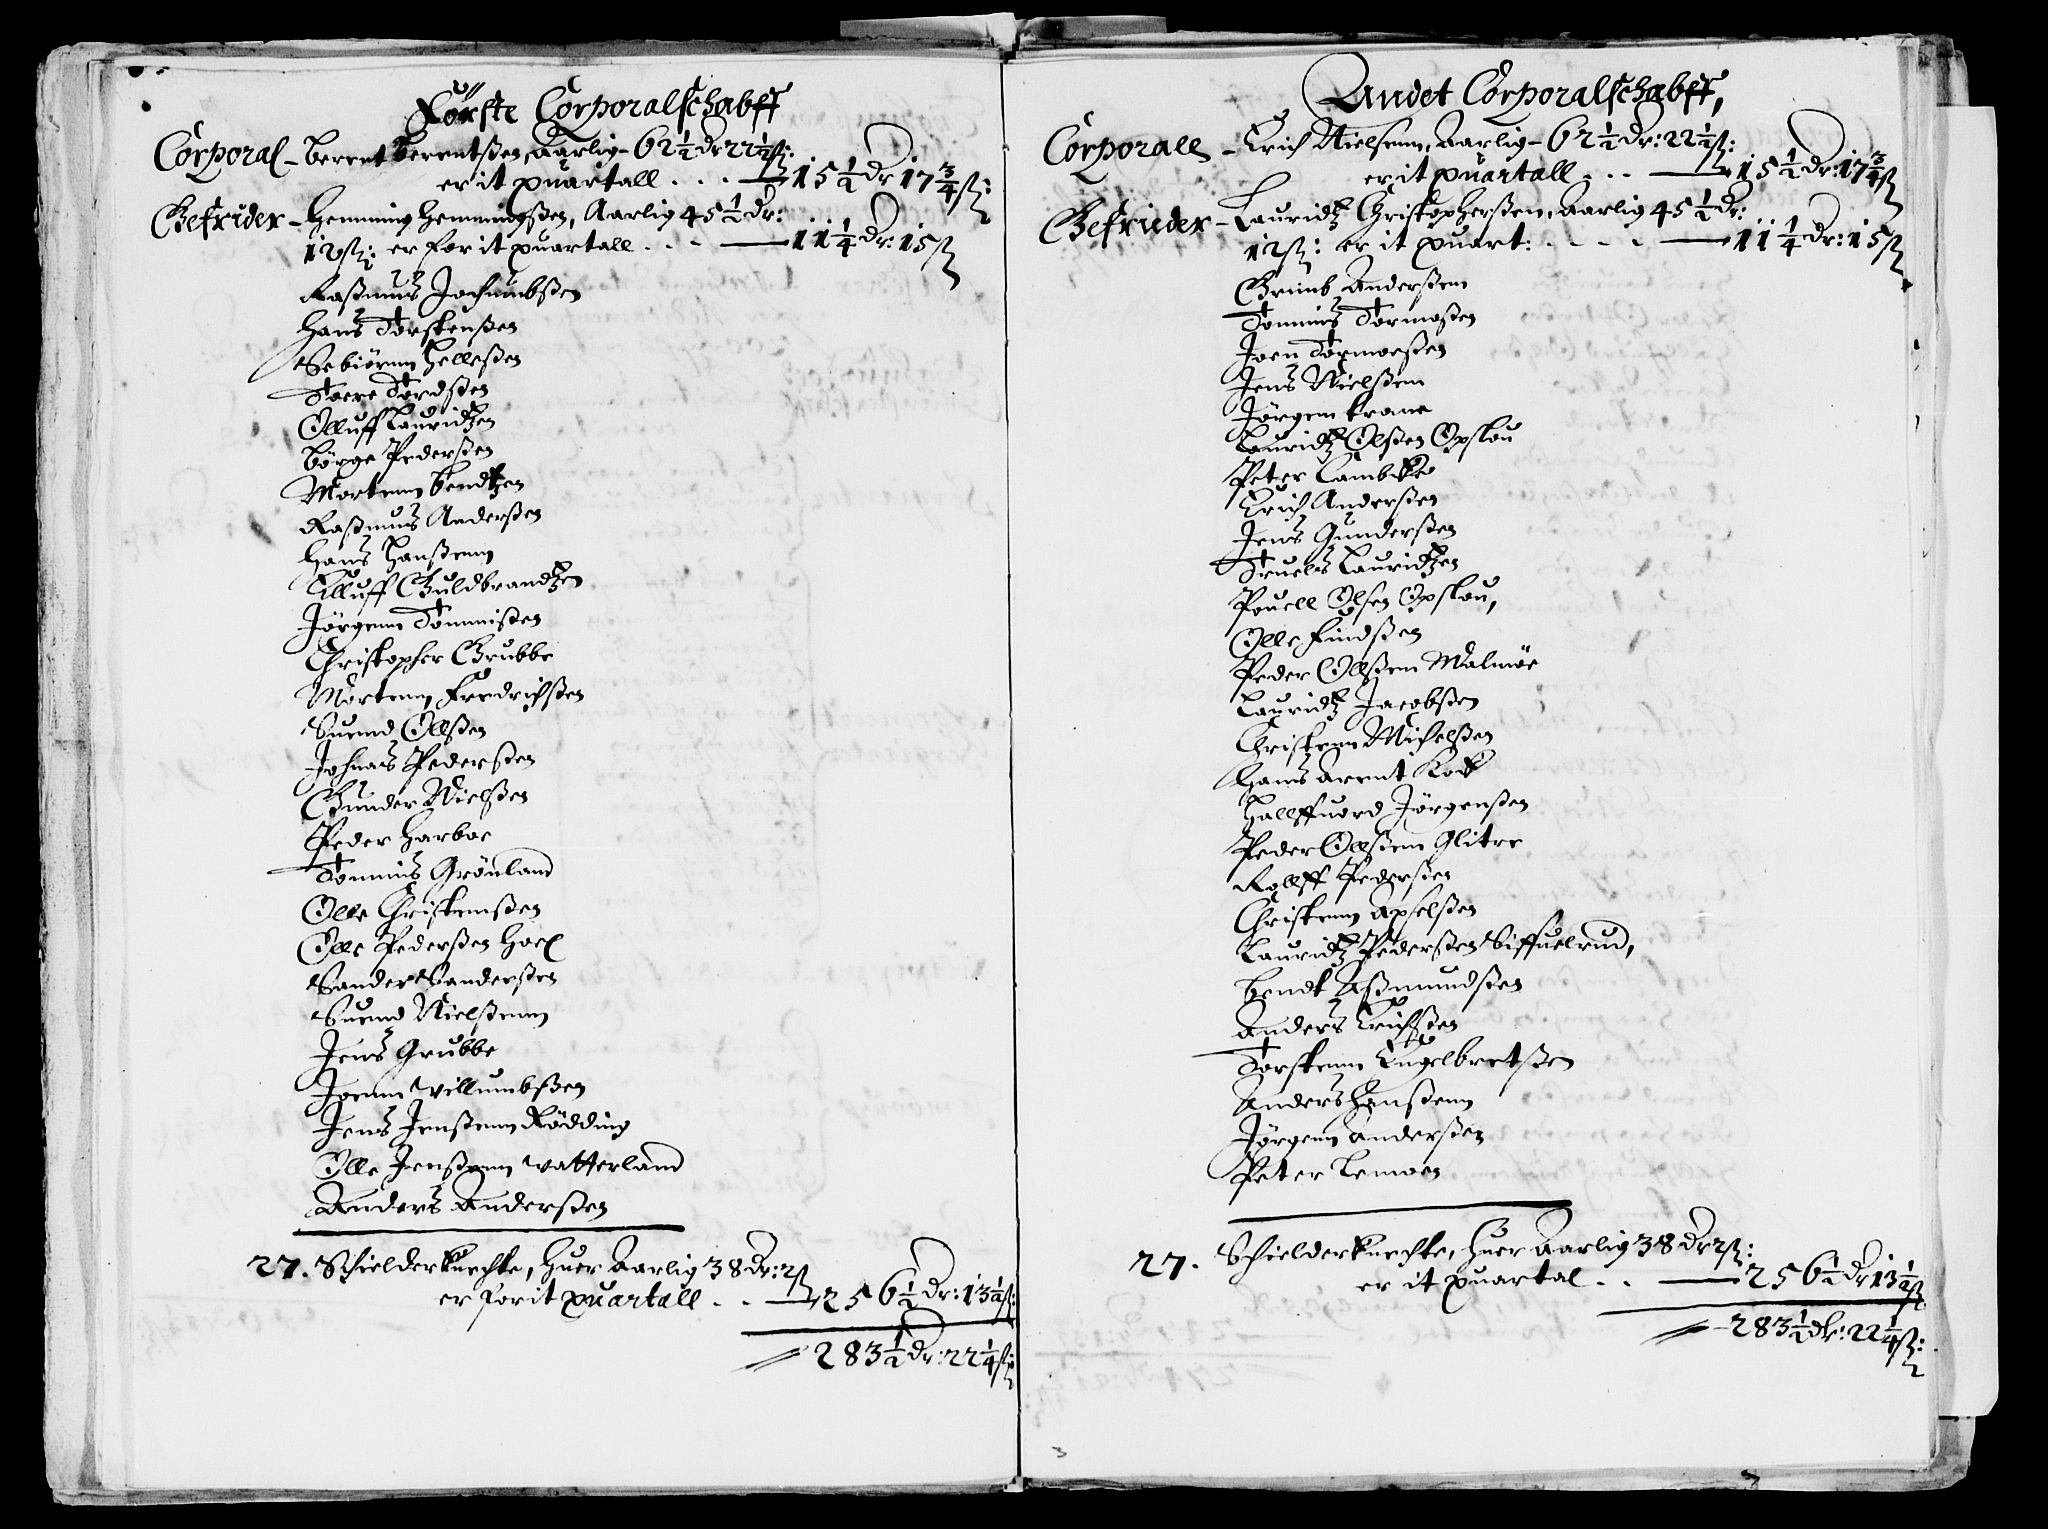 Förste Corporalschabff
Corporal - Berent Berentßen, Aarlig - 62½ dr 22½ ß:
er it quartall . . . — 15½ dr 17¾ ß:
Gefrider - Hemming Hemmingßen, Aarlig 45½ dr:
12 ß: er for it quartall . . . — 11¼ dr: 15 ß
Raßmus Jochumbßen
Hans Torstenßen
Sebiörnn Helleßen
Toere Tordßen
Olluff Lauridtzen
Börge Pederßen
Mortenn Bendtzen
Raßmus Anderßen
Hans Hanßenn
Elluff Guldbrandtzen
Jörgenn Tommißen
Christopher Grubbe
Mortenn Fredrichßen
Suend Ollßen
Johnas Pederßen
Gunder Nielßen
Peder Harboe
Tommis Grönland
Olle Christenßen
Olle Pederßen Hoel
Sander Sanderßen
Suend Nielßenn
Jens Grubbe
Joenn Villumbßen
Jens Jenßenn Rödding
Olle Jenßenn Vatterland
Anders Anderßen
27. Schielderknechte, Huer Aarlig 38 dr: 2 ß
er for it quartall . . — 256½ dr: 13½ ß:
283½ dr: 22¼ ß:
Andet Corporalschabfft,
Corporall - Erich Nielsenn, Aarlig - 62½ dr: 22½ ß:
er it quartall . . . — 15½ dr: 17¾ ß
Gefrieder - Lauridtz Christopherßen, Aarlig 45½ dr:
12 ß: er it quart: . . . . — 11¼ dr: 15 ß
Grumb Anderßenn
Tommis Tormoßen
Joen Tormoeßen
Jens Nielßenn
Jörgenn Krane
Lauridtz Olßen Opslou
Peter Lambeke
Erich Anderßen
Jens Gunderßen
Truels Lauridtzen
Pouell Olsen Opslou,
Olle Findßen
Peder Ollßenn Malmöe
Lauridtz Jacobßen
Christenn Michelßen
Hans Arent Kock
Hallffuord Jörgenßen
Peder Ollßenn Glitre
Rollff Pederßen
Christenn Apselßen
Lauridtz Pederßen Siffuelrud,
Bendt Aßmundßen
Anders Erichßen
Torstenn Engelbretßen
Anders Hanßenn
Jörgenn Anderßen
Peter Lemoen
27. Schielderknechte, Huer Aarlig 38 dr 2 ß:
er it quartal . . — 256½ dr 13½ ß
283½ dr: 22¼ ß: